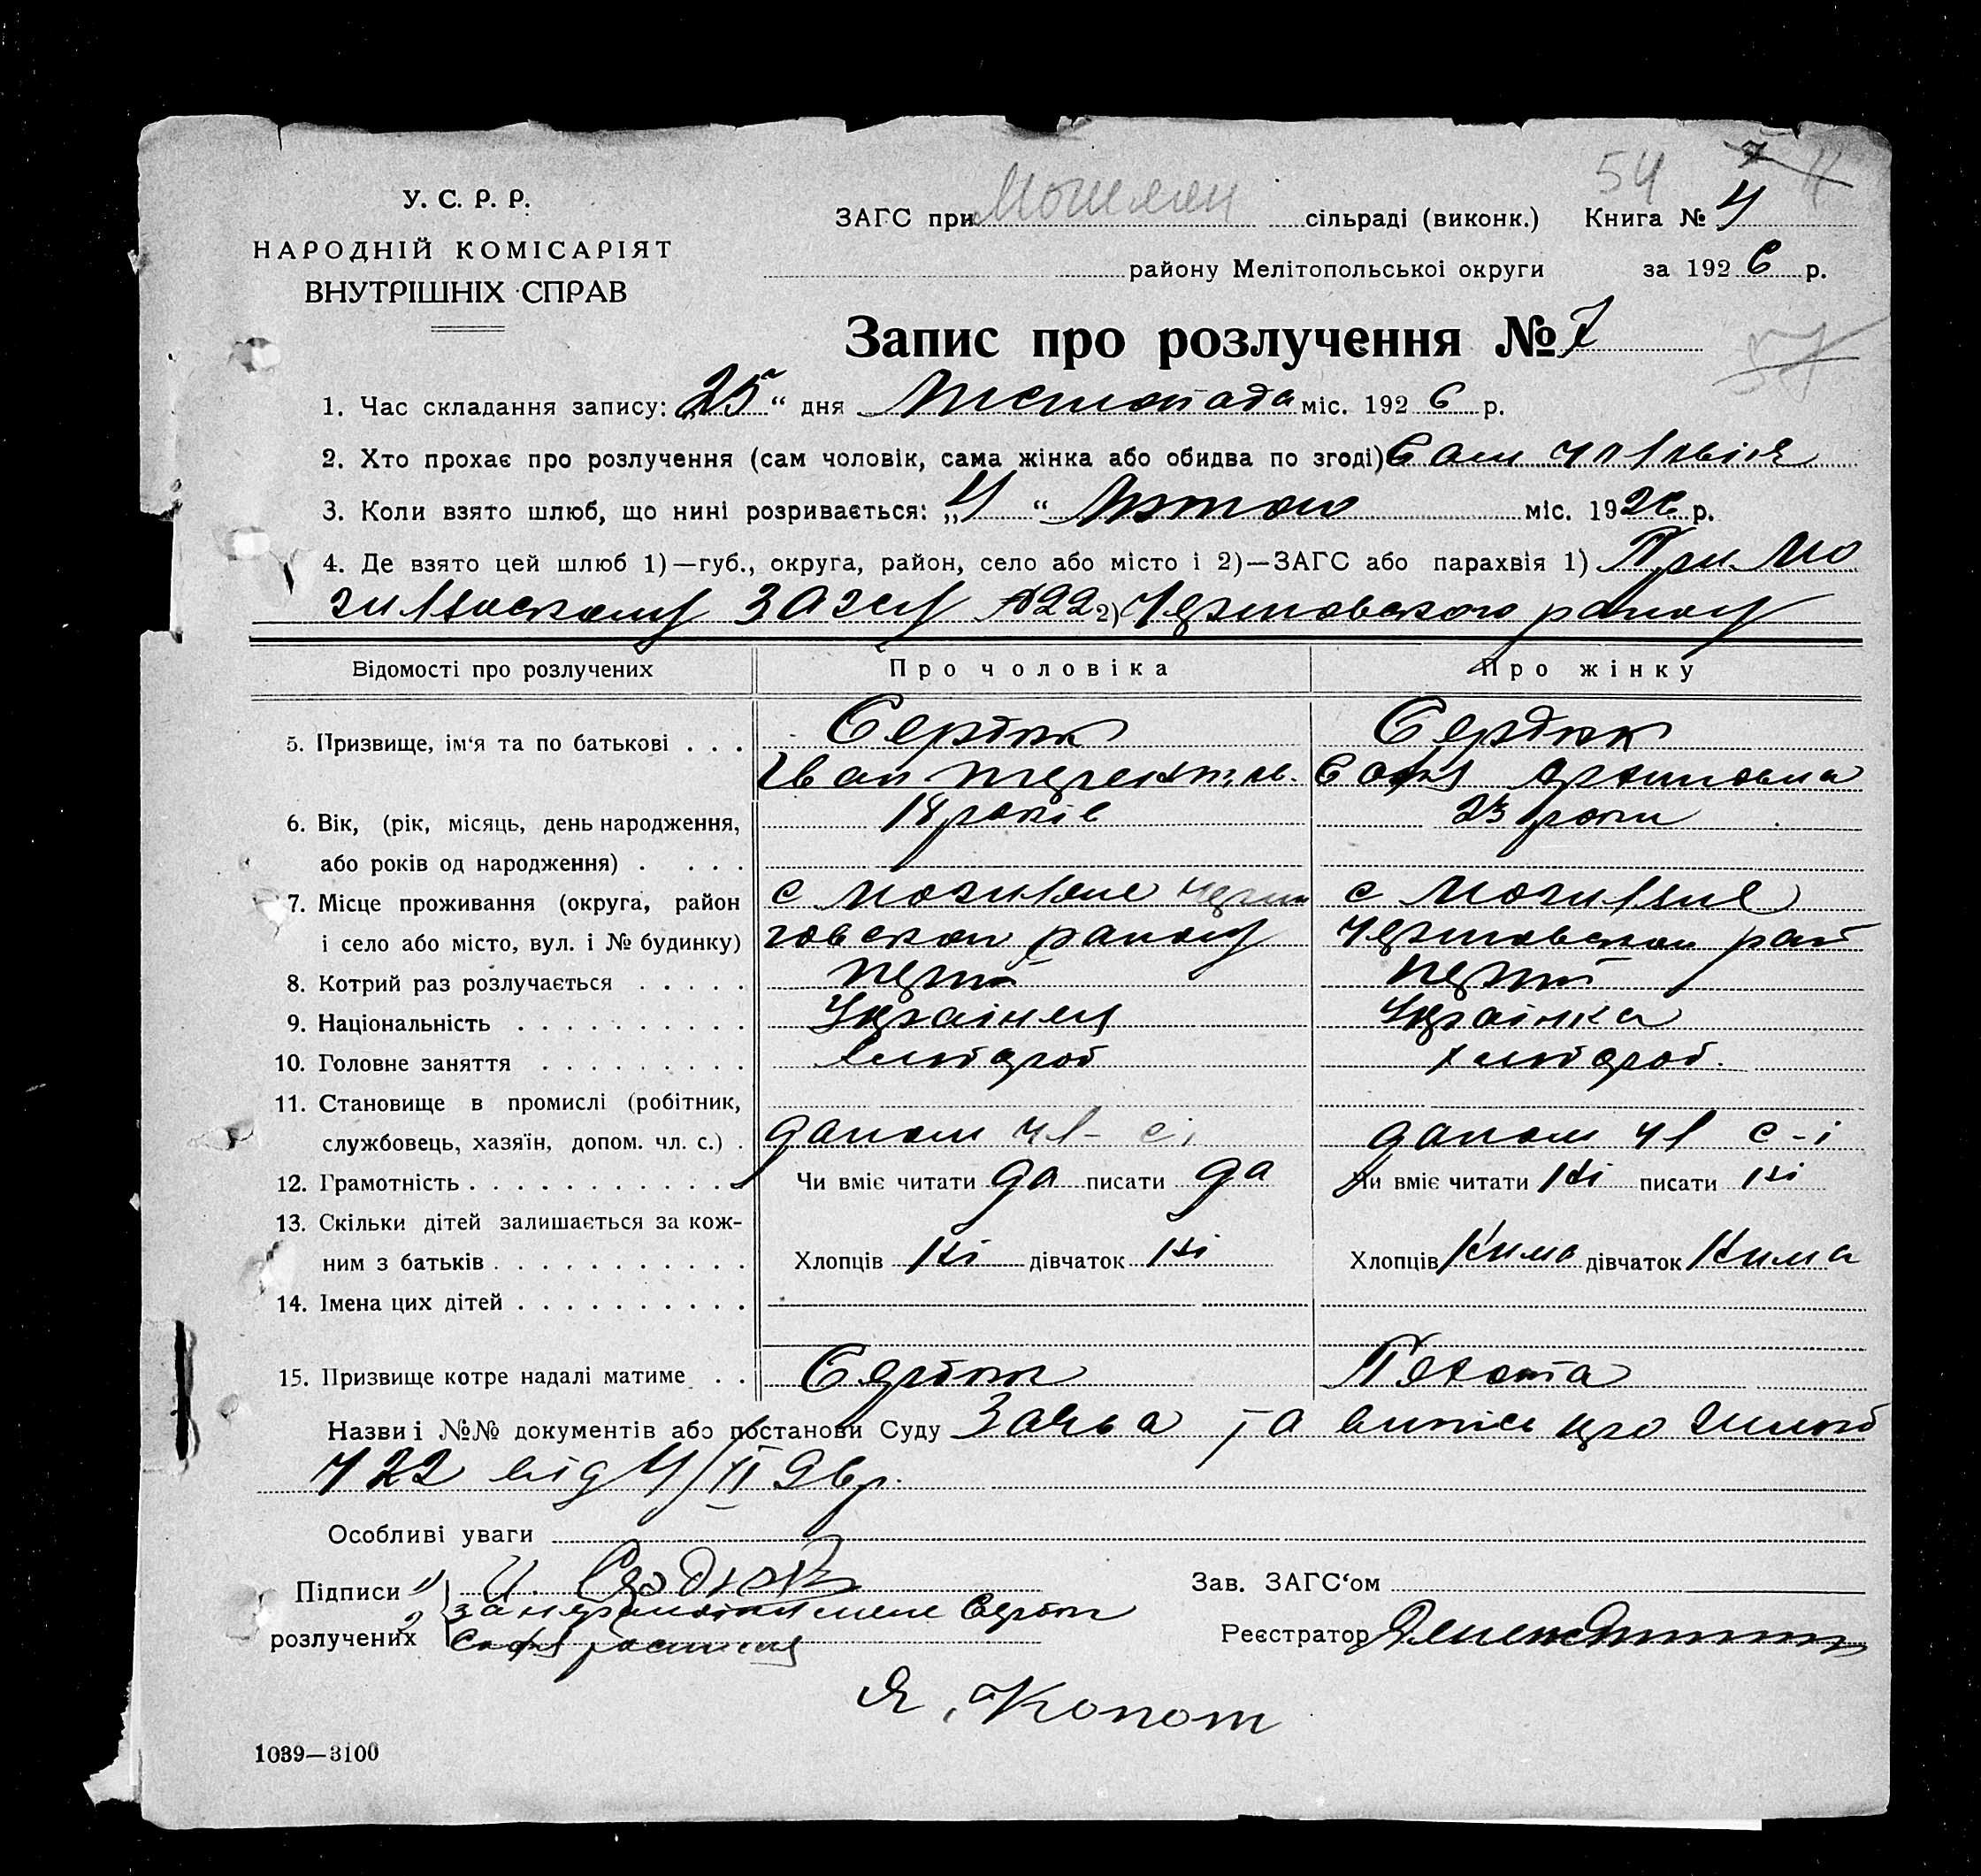 54 7 4
У. С. Р. Р.
НАРОДНІЙ КОМІСАРІЯТ
ВНУТРІШНІХ СПРАВ
ЗАГС при сільраді (виконк.) Книга № 4
району Мелітопольської округи за 1926 р.
Запис про розлучення № 7
57
1. Час складання запису: „25“ дня Листопада міс. 1926 р.
2. Хто прохає про розлучення (сам чоловік, сама жінка або обидва по згоді) Сам чоловік
3. Коли взято шлюб, що нині розривається: „4“ Лютого міс. 1926 р.
4. Де взято цей шлюб 1)—губ., округа, район, село або місто і 2)—ЗАГС або парахвія 1) При Мо
гилянскому ЗАГСу №22 2) Черниговского району
Відомості про розлучених Про чоловіка Про жінку
5. Призвище, ім'я та по батькові . . . Сердюк Сердюк
Іван Софя
6. Вік, (рік, місяць, день народження, 18 років 23 роки
або років од народження) . . . . .
7. Місце проживання (округа, район с Могиляне Черни с Могиляне
і село або місто, вул. і № будинку) говскои району Черниговскои рай
8. Котрий раз розлучається . . . . . перший перший
9. Національність . . . . . . . . . . Українец Українка
10. Головне заняття . . . . . . . . . хлибороб хлибороб.
11. Становище в промислі (робітник,
службовець, хазяїн, допом. чл. с.) . допом чл- сі допом чл с-і
12. Грамотність . . . . . . . . . . . . Чи вміє читати да писати да Чи вміє читати ні писати ні
13. Скільки дітей залишається за кож-
ним з батьків . . . . . . . . . . . Хлопців ні дівчаток ні Хлопців Нима дівчаток Нима
14. Імена цих дітей . . . . . . . . . .
15. Призвище котре надалі матиме . . Сердюк Пехота
Назви і №№ документів або постанови Суду Заява та випись про шлюб
№22 від 4/II 26р.
Особливі уваги
Підписи 1) И. Сердюк Зав. ЗАГС'ом
2 за неграмотнои мене Сердюк
розлучених Софя росписися Реєстратор
Я. Копот
1039—3100